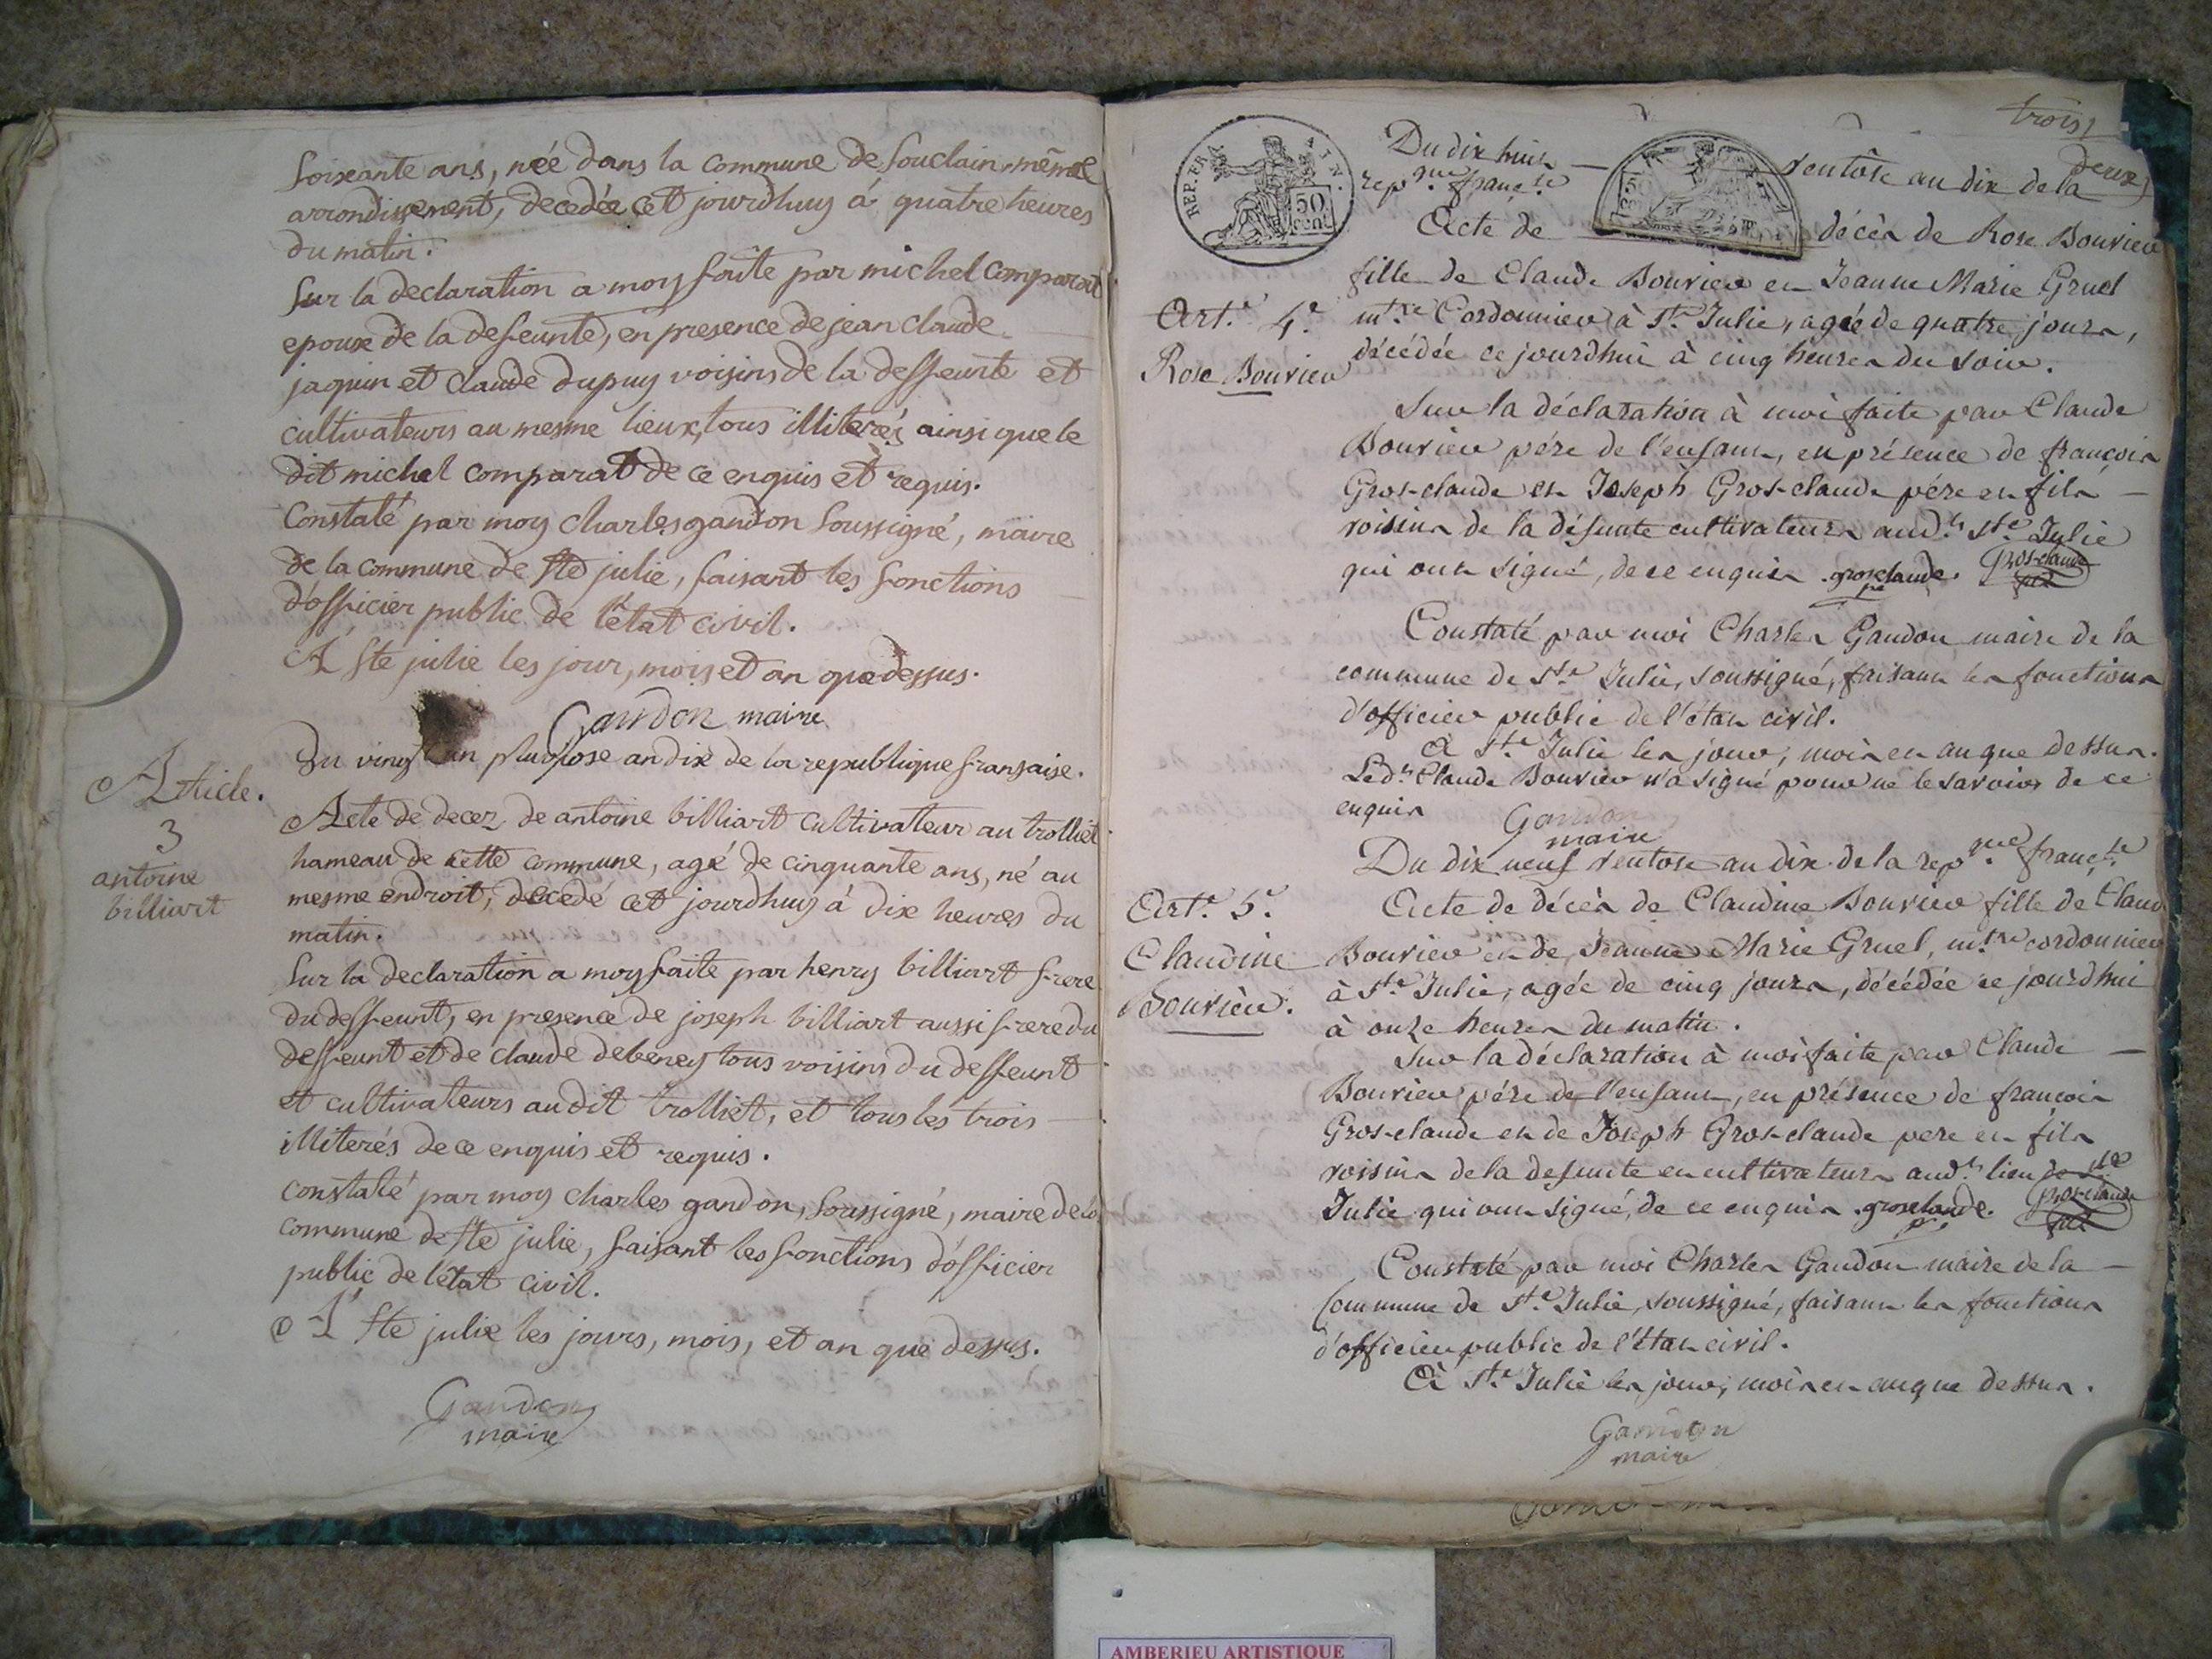 soixante ans, née dans la commune de Souclain, même
arrondissement, decedée cet jourdhuy á quatre heures
du matin.
sur la declaration a moy faite par michel Comparat
epoux de la defeunte, en presence de jean claude
jaquin et claude dupuy voisins de la deffeunte et
cultivateurs au mesme lieux, tous illiterés ainsi que le
dit michel comparat de ce enquis et requis.
Constaté par moy charles gandon soussigné, maire
de la commune de Ste julie, faisant les fonctions
d'officier public de l'état civil.
A Ste julie les jour, mois et an que dessus.
Gandon maire
Article.
3
antoine
billiart
Du vingt un pluviose an dix de la republique fransaise.
Acte de decez de antoine billiart cultivateur au trolliet
hameau de cette commune, agé de cinquante ans, né au
mesme endroit, decedé cet jourdhuy á dix heures du
matin.
sur la declaration a moy faite par henry billiart frere
du deffeunt, en presence de joseph billiart aussi frere du
deffeunt et de claude debeney tous voisins du deffeunt
et cultivateurs audit trolliet, et tous les trois
illiterés de ce enquis et requis.
constaté par moy charles gandon, soussigné, maire de la
commune de Ste julie, faisant les fonctions d'officier
public de l'état civil.
A Ste julie les jours, mois, et an que dessus.
Gandon
maire
trois
deux
REP. FRA
AIN.
50
CEN.
50
Du dix huit ventôse an dix de la
repque. françse
Acte de décès de Rose Bouvier
fille de Claude Bouvier et Jeanne Marie Gruel
Art.e 4.e
Rose Bouvier
mtre Cordonnier à Ste Julie, agée de quatre jours,
décédée ce jourdhui à cinq heures du soir.
Sur la déclaration à moi faite par Claude
Bouvier pére de l'enfant, en présence de françois
Gros-claude et Joseph Gros-claude pére et fils
voisins de la défunte cultivateurs audt Ste Julie
qui ont signé, de ce enquis. groselaude. Gros-claude
fils
Constaté par moi Charles Gandon maire de la
commune de Ste Julie, soussigné, faisant les fonctions
d'officier public de l'état civil.
A Ste Julie les jour, mois et an que dessus.
Ledt Claude Bouvier n'a signé pour ne le savoir de ce
enquis
Gandon
maire
Du dix neuf ventose an dix de la repque. françse
Art.e 5.e
Claudine
Bouvier.
Acte de décès de Claudine Bouvier fille de Claud
Bouvier et de Jeanne Marie Gruel, mtre cordonnier
à Ste Julie, agée de cinq jours, décédée ce jourdhui
à onze heures du matin.
Sur la déclaration à moi faite par Claude
Bouvier pére de l'enfant, en présence de françois
Gros-claude et de Joseph Gros-claude pere et fils
voisins de la defunte et cultivateurs audt lieu de Ste
Julie qui ont signé, de ce enquis. groselaude. Gros-claude
fils
Constaté par moi Charles Gandon maire de la
Commune de Ste Julie, soussigné, faisant les fonctions
d'officier public de l'état civil.
A Ste Julie les jour, mois et an que dessus.
Gandon
maire
AMBERIEU ARTISTIQUE